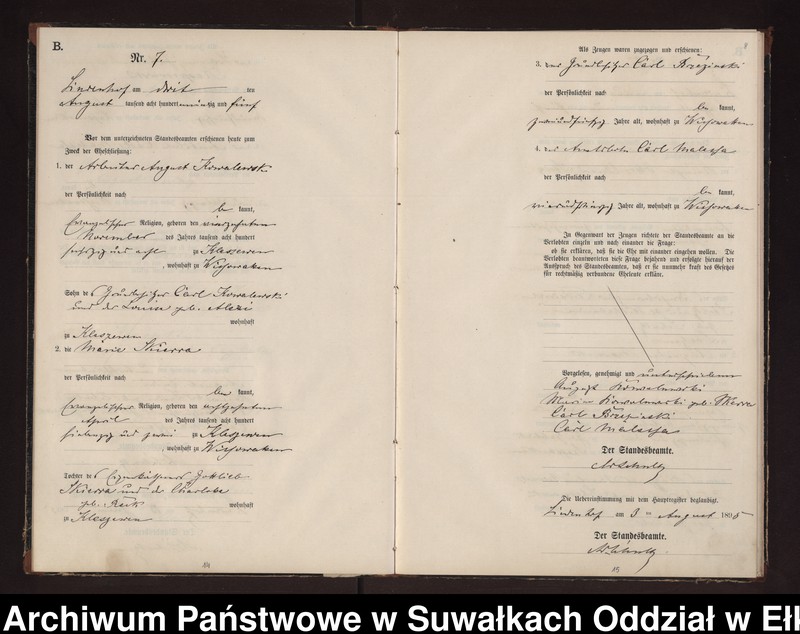 B.
Nr. 7.
Lindenhof am drei ten
August tausend acht hundert neunzig und fünf
Vor dem unterzeichneten Standesbeamten erschienen heute zum
Zweck der Eheschließung:
1. der Arbeiter August Kowalewski
der Persönlichkeit nach
be kannt,
evangelischer Religion, geboren den vierzehnten
November des Jahres tausend acht hundert
sechszig und acht zu Kleszewen
, wohnhaft zu
Sohn des Grundbesitzer Carl Kowalewski
und der Louise geb. Alexi
wohnhaft
zu Kleszewen
2. die Marie Skierra
der Persönlichkeit nach
be kannt,
evangelischer Religion, geboren den achtzehnten
April des Jahres tausend acht hundert
siebenzig und zwei zu Kleszewen
, wohnhaft zu
Tochter des Eigenkäthners Gottlieb
Skierra und der Charlotte
geb. wohnhaft
zu Kleszewen
14
Als Zeugen waren zugezogen und erschienen:
3. der Grundbesitzer Carl Brzezinski
der Persönlichkeit nach
be kannt,
Jahre alt, wohnhaft zu
4. der Amtsdiener Carl Malessa
der Persönlichkeit nach
be kannt,
Jahre alt, wohnhaft zu
In Gegenwart der Zeugen richtete der Standesbeamte an die
Verlobten einzeln und nach einander die Frage:
ob sie erklären, daß sie die Ehe mit einander eingehen wollen. Die
Verlobten beantworteten diese Frage bejahend und erfolgte hierauf der
Ausspruch des Standesbeamten, daß er sie nunmehr kraft des Gesetzes
für rechtmäßig verbundene Eheleute erkläre.
Vorgelesen, genehmigt und unterschrieben
August Kowalewski
Marie Kowalewski geb. Skierra
Carl Brzezinski
Carl Malessa
Der Standesbeamte.
Die Uebereinstimmung mit dem Hauptregister beglaubigt.
Lindenhof am 3 ten August 1895
Der Standesbeamte.
15
Archiwum Państwowe w Suwałkach Oddział w Ełk